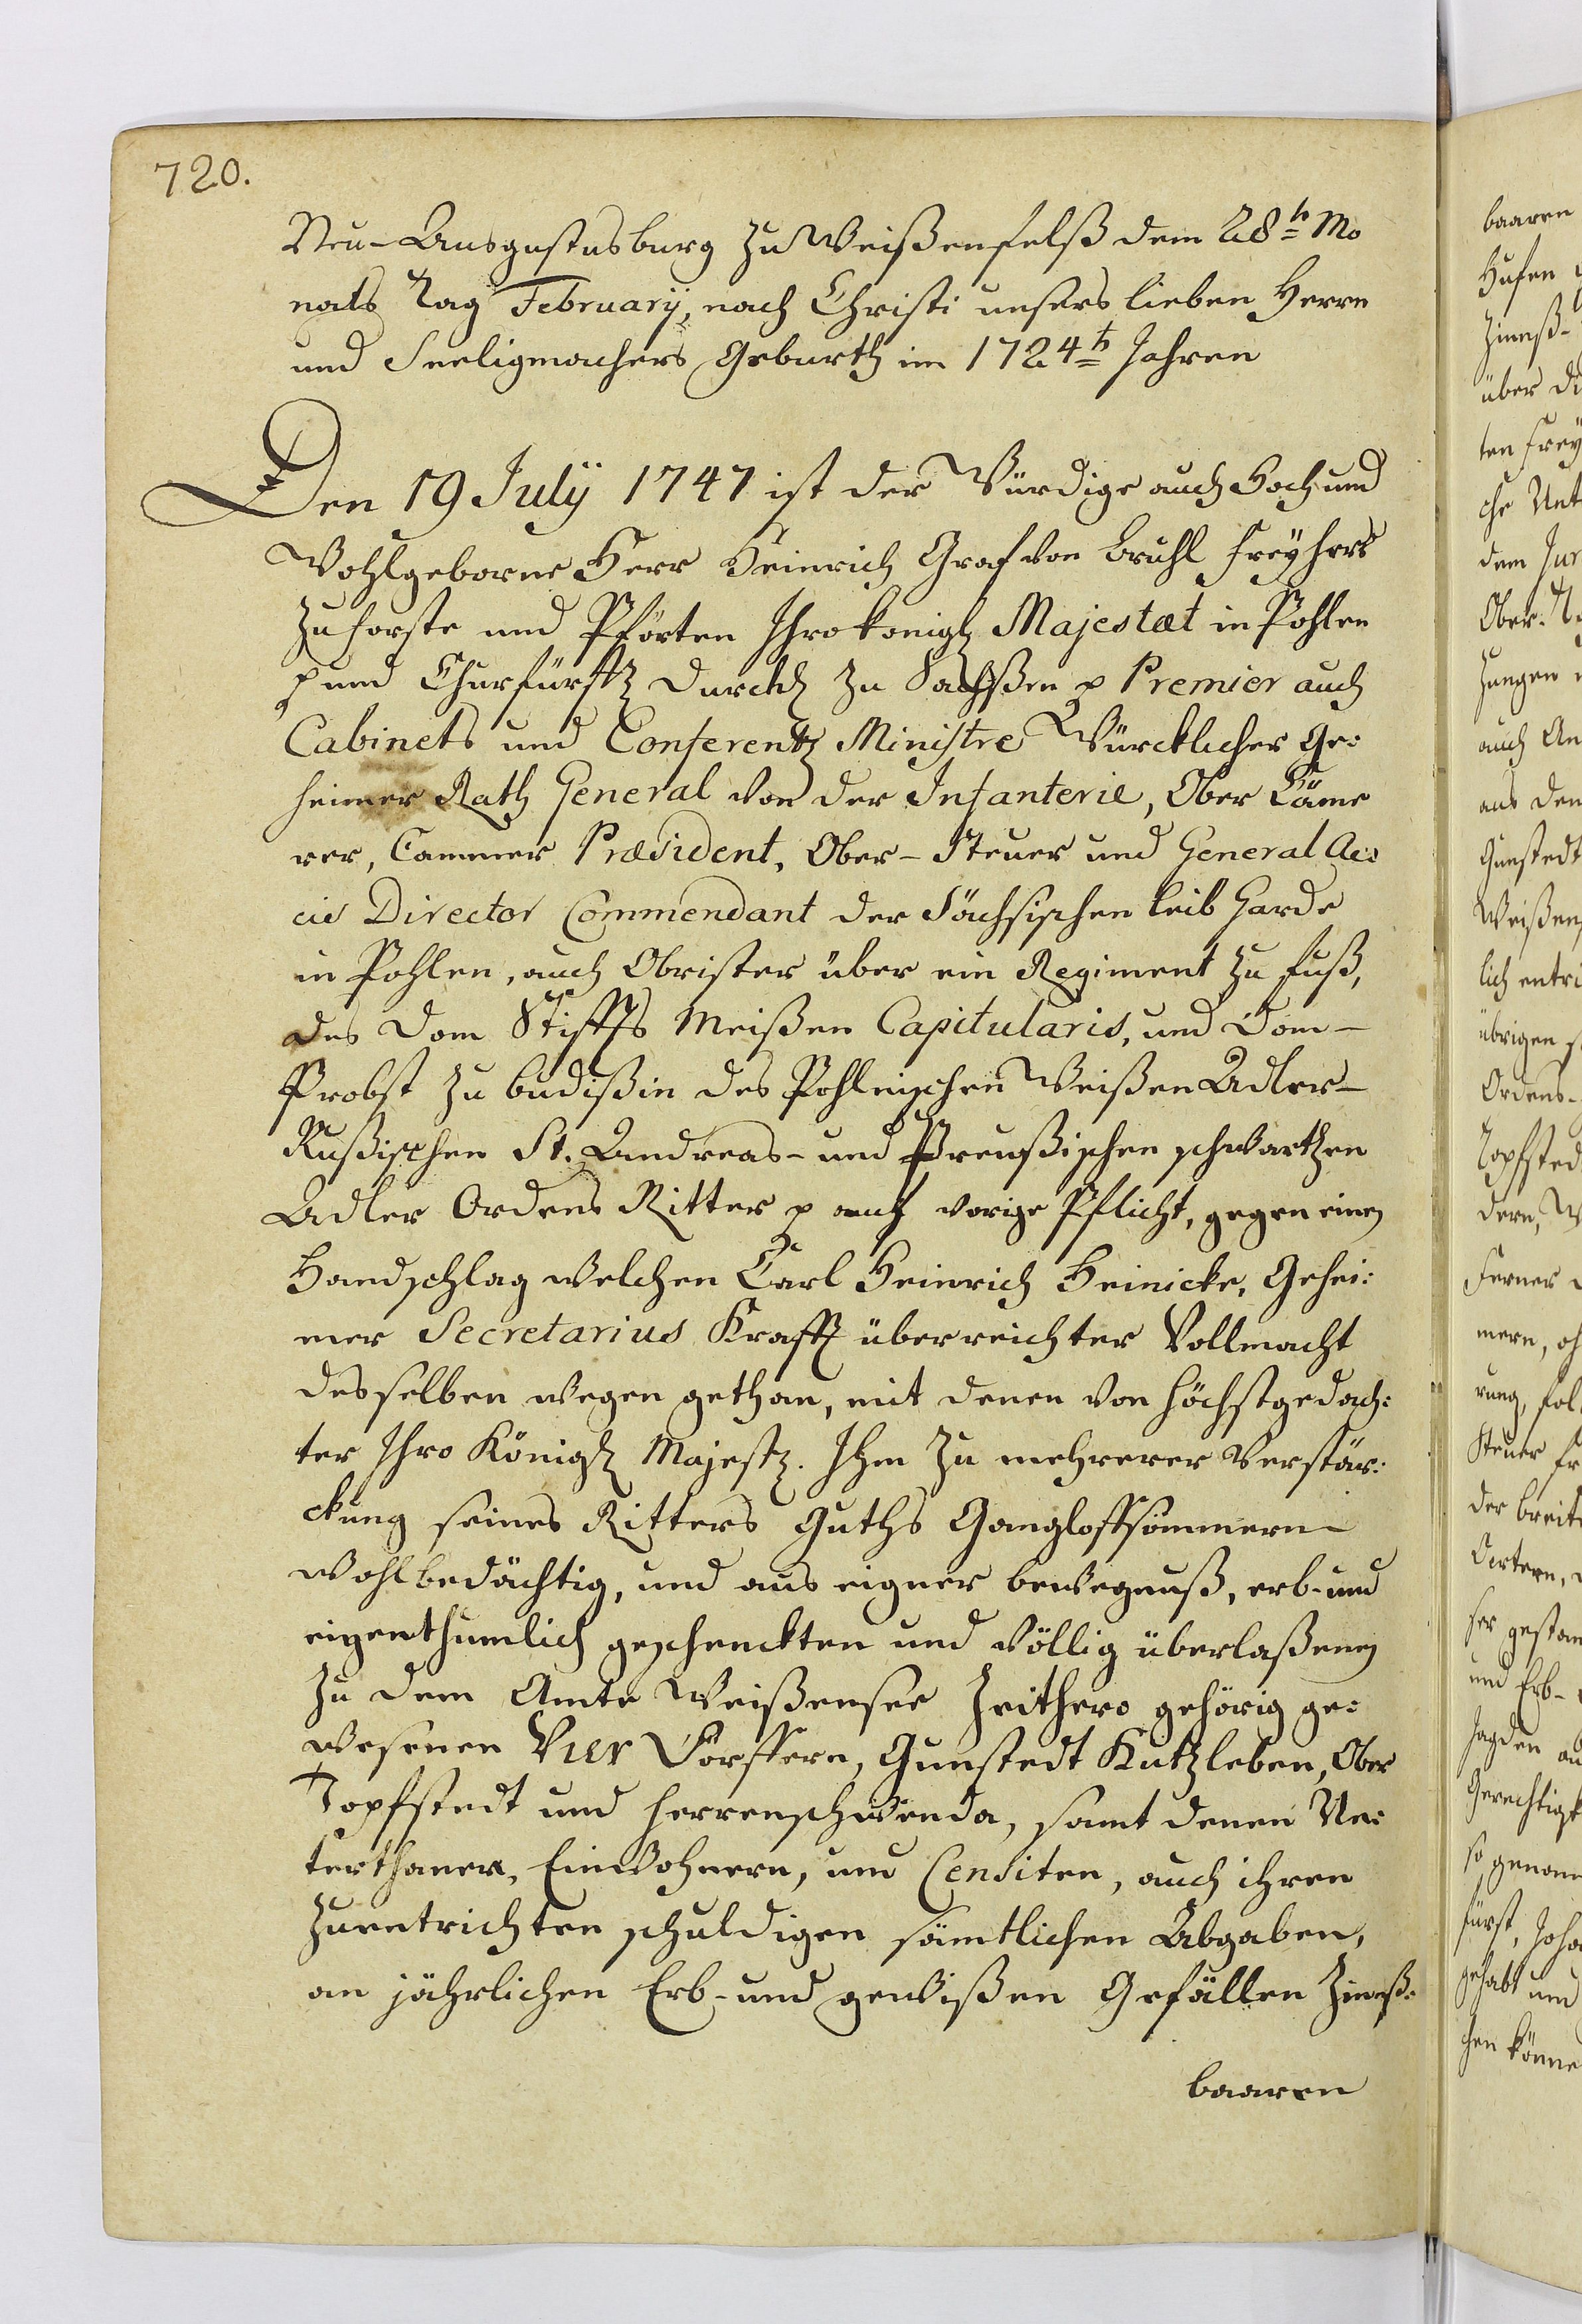 720.
Neu-Ausgustusburg zu Weißenfelß dem 28t Mo
nats Tag Februarij, nach Christi unsers lieben Herrn
und Seeligmachers Geburth im 1724t Jahren
Den 19 Julij 1747 ist der Würdige auch Hoch und
Wohlgeborne Herr Heinrich Graf von Bruhl Freyherr
zu Forste und Pförten Ihro konigl Majestæt in Pohlen
p und Churfürstl Durchl zu Sachßen p Premier auch
Cabinets und Conferentz Ministre Würcklicher Ge:
heimer Rath General von der Infanterie, Ober Käme
rer, Cammer Præsident, Ober-Steuer und General Ac:
cis Director Commendant der Sächsischen leib Garde
in Pohlen, auch Obrister über ein Regiment zu Fuß,
des Dom Stiffts Meißen Capitularis, und Dom-
Probst zu Budißin des Pohlnischen Weißen Adler-
Rußischen St. Andreas- und Preußischen schwartzen
Adler Ordens Ritter p auf vorige Pflicht, gegen einen
Handschlag welchen Carl Heinrich Heinicke, Gehei:
mer Secretarius Krafft überreichter Vollmacht
desselben wegen gethan, mit denen von höchstgedach:
ter Ihro Königl Majest. Ihm zu mehrerer Verstär:
ckung seines Ritters Guths Gangloffsömmern
wohlbedächtig, und aus eigner bewegnuß, erb- und
eigenthumlich geschenckten und völlig überlaßenen
zu dem Amte Weißensee Zeithero gehörig ge:
wesenen Vier Dörffern, Gunstedt Kutzleben, Ober
Topfstedt und Herrenschwenda, samt denen Un:
terthanen, Einwohnern, und Censiten, auch ihren
zuentrichten schuldigen sämtlichen Abgaben,
an jährlichen Erb- und gewißen Gefällen Zinnß:
baaren
baaren
Hufen
Zinnß-
über di
ten Frey
che Unt
dem Jur
Ober-
zungen
auch An
aus den
Gunstedt
Weißen
lich entri
übrigen
Ordens-
Topfsted
dern, W
Ferner
mern, oh
rung, fol
Steuer fr
der breit
Oertern,
ser gestan
und Erb-
Jagden au
Gerechtigk
so genan
fürst, Joha
gehabt und
hen könne